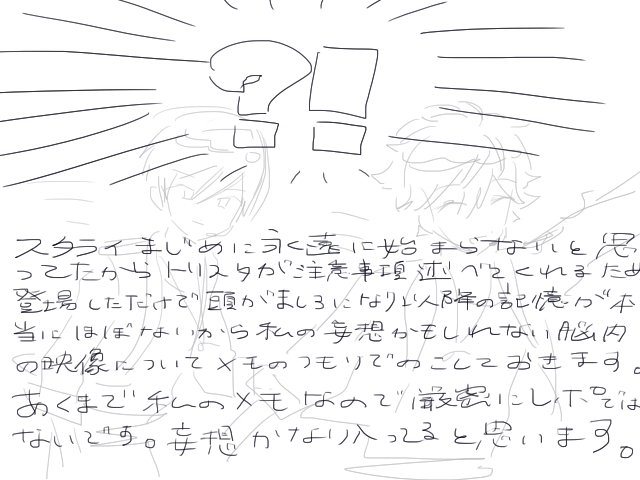 ?!
スタライまじめに永遠に始まらないと思
ってたからトリスタが注意事項述べてくれるため
登場しただけで頭がましろになり以降の記憶が本
当にほぼないから私の妄想かもしれない脳内
の映像についてメモのつもりでのこしておきます。
あくまで私のメモなので厳密にレポでは
ないです。妄想かなり入ってると思います。